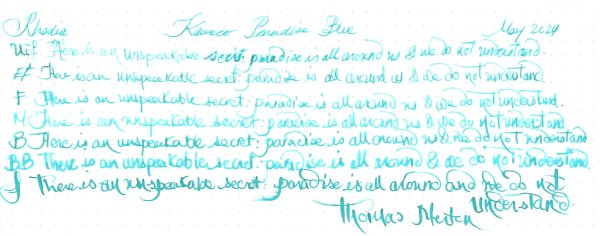 Rhodia Kaweco Paradise Blue May 2024
UEF There is an unspeakable secret: paradise is all around us & we do not understand.
EF There is an unspeakable secret: paradise is all around us & we do not understand.
F There is an unspeakable secret: paradise is all around us & we do not understand.
M There is an unspeakable secret: paradise is all around us & we do not understand
B There is an unspeakable secret: paradise is all around us & we do not understand
BB There is an unspeakable secret: paradise is all around & we do not understand.
J There is an unspeakable secret: paradise is all around and we do not
understand.
Thomas Merton